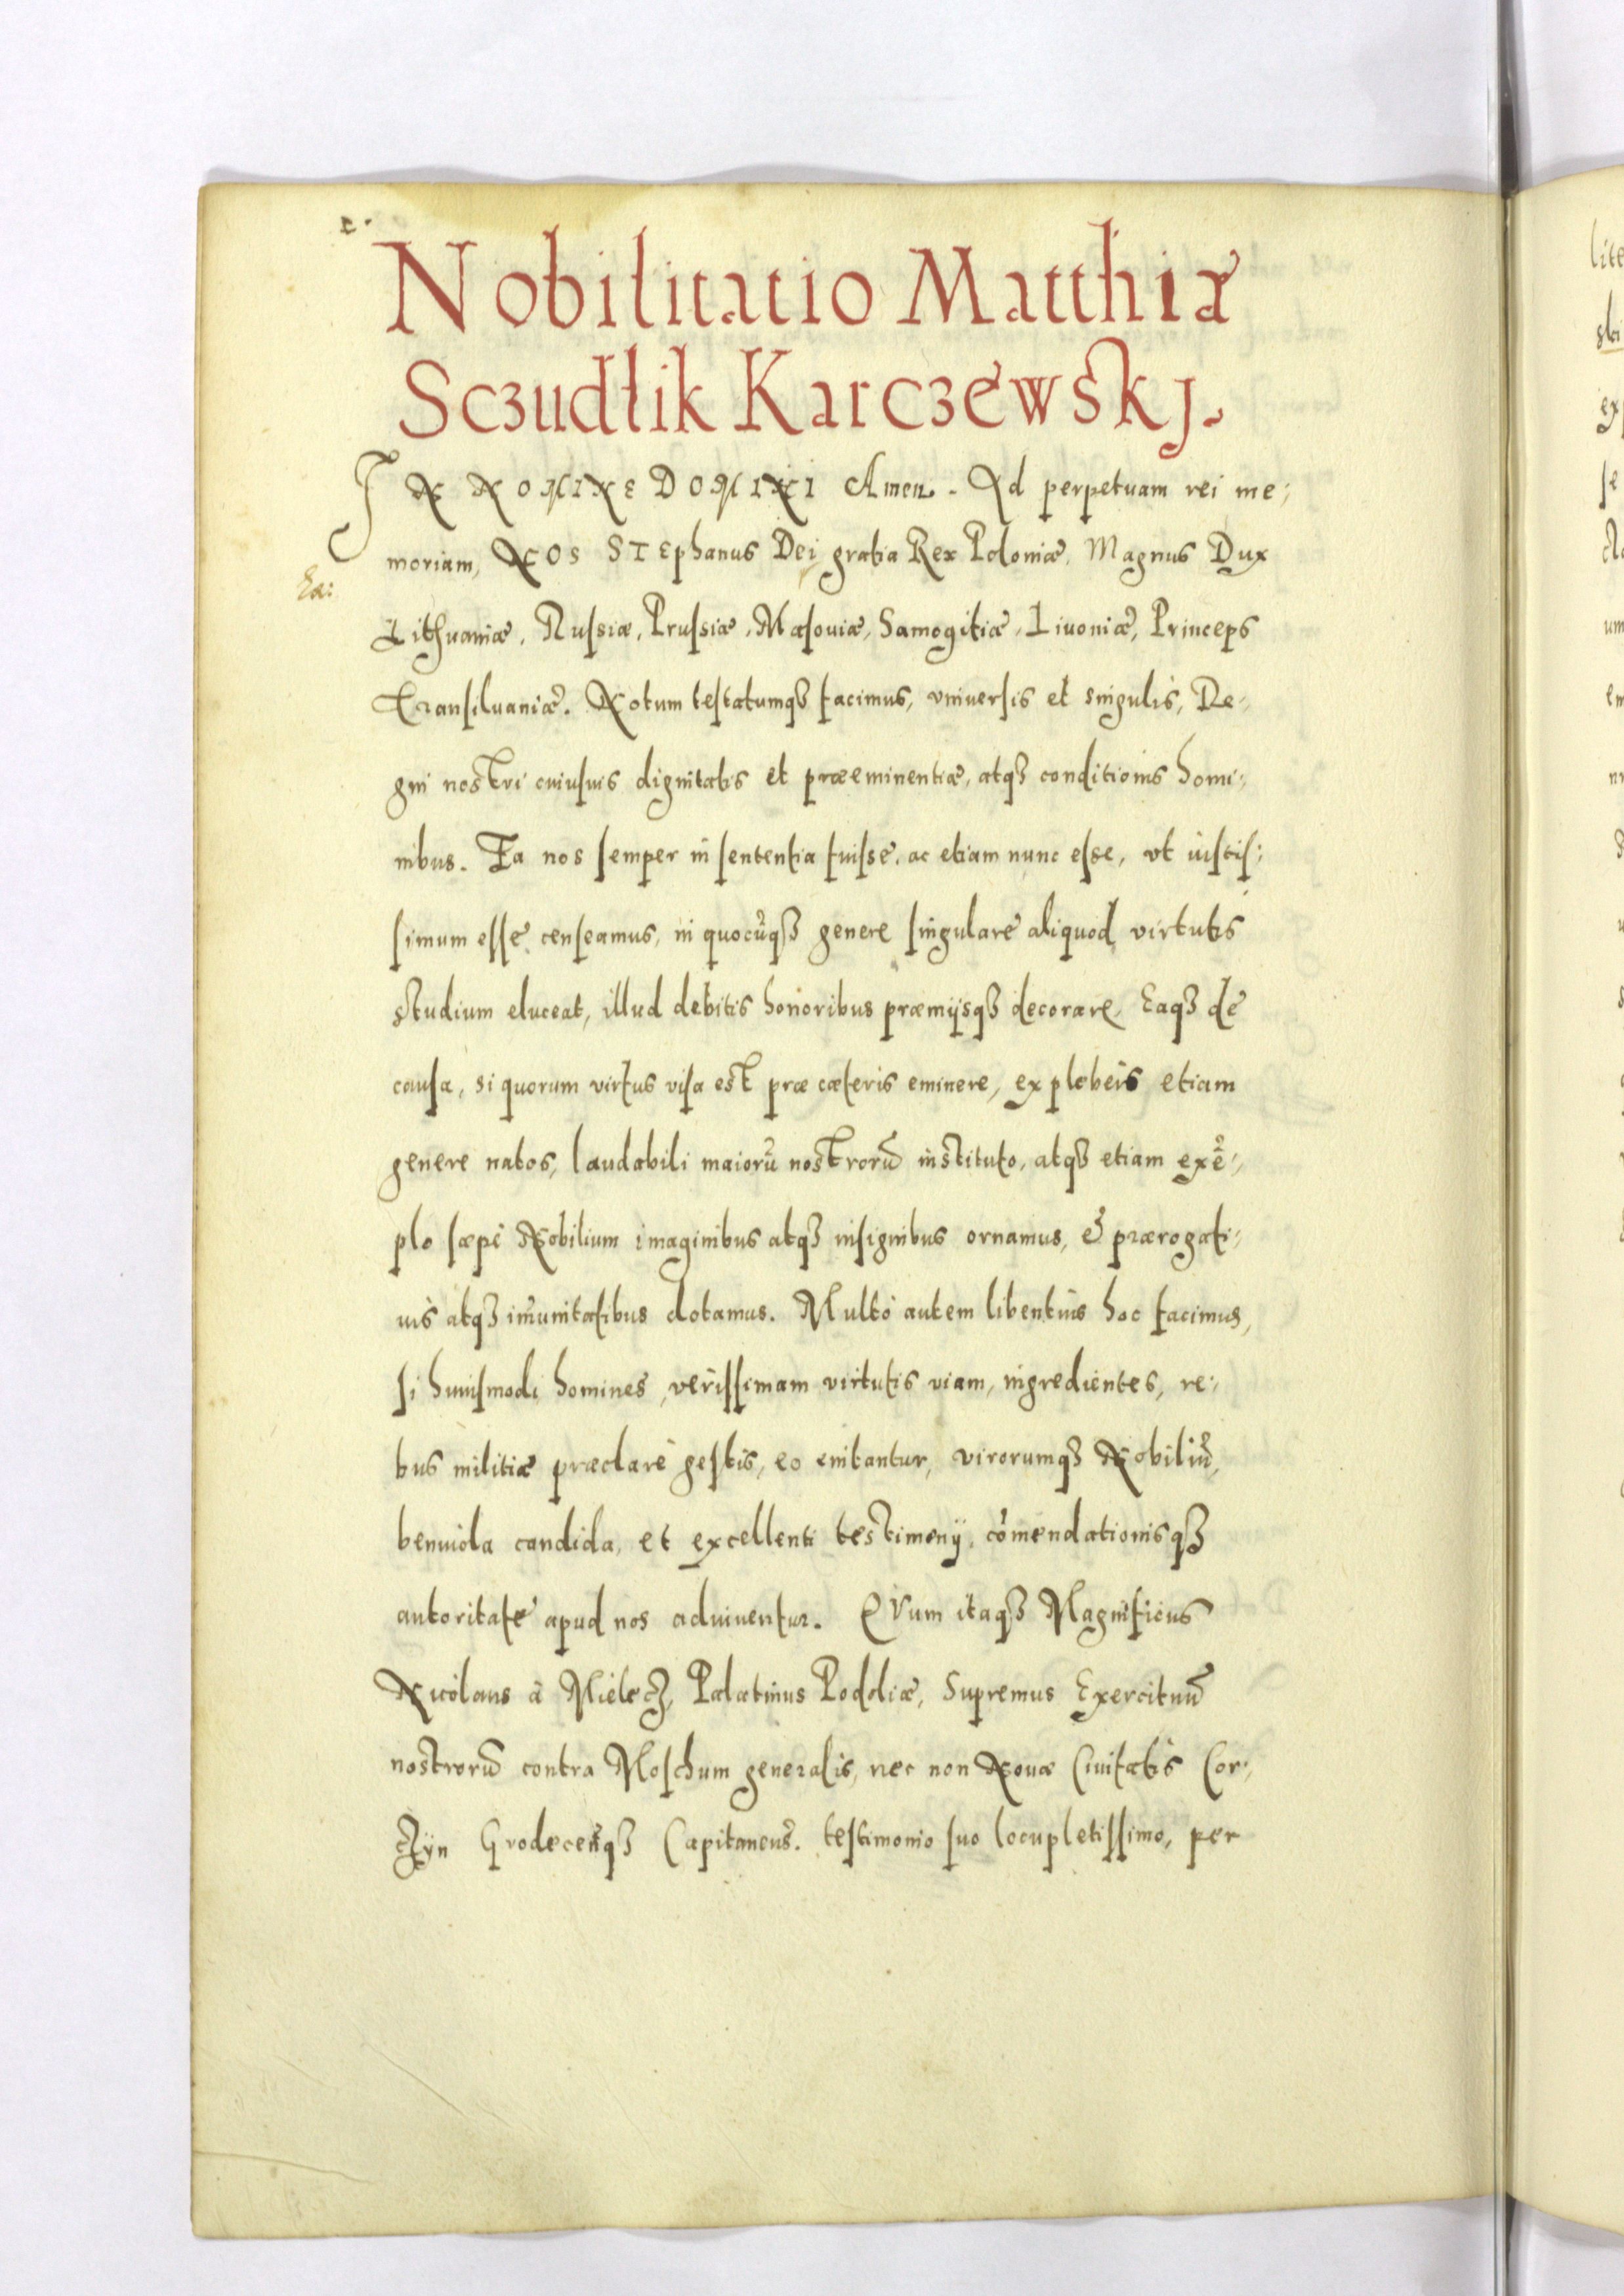 Nobilitatio Matthiæ
Sczudłik Karczewskj.
IN NOMINE DOMINI Amen. Ad perpetuam rei me:
moriam, NOS STEphanus Dei gratia Rex Poloniæ, Magnus Dux
Lithuaniæ, Russiæ, Prussiæ, Masouiæ, Samogitiæ, Liuoniæ, Princeps
Transiluaniæ. Notum testatumqȝ facimus, vniuersis et singulis, Re:
gni nostri cuiusuis dignitatis et præeminentiæ, atqȝ conditionis homi:
nibus. Ea nos semper in sententia fuisse, ac etiam nunc esse, vt iustis:
simum esse censeamus, in quocūqȝ genere singulare aliquod virtutis
studium eluceat, illud debitis honoribus præmijsqȝ decorare, Eaqȝ de
causa, si quorum virtus visa est præ cæteris eminere, ex plebeis etiam
genere natos, laudabili maiorū nostrorū instituto, atqȝ etiam exē:
plo sæpe Nobilium imaginibus atqȝ insignibus ornamus, & prærogati:
uis atqȝ im̄unitatibus dotamus. Multo autem libentius hoc facimus,
si huiusmodi homines, verissimam virtutis viam, ingredientes, re:
bus militiæ præclarè gestis, eo enitantur, virorumqȝ Nobiliū,
beniuola candida, et excellenti testimonij, cōmendationisqȝ
autoritate apud nos adiuuentur. CVum itaqȝ Magnificus
Nicolaus à Mielecz, Palatinus Podoliæ, Supremus Exercituū
nostrorū contra Moschum generalis, nec non Nouæ Ciuitatis Cor:
czÿn Grodecen̄qȝ Capitaneus. testimonio suo locupletissimo, per